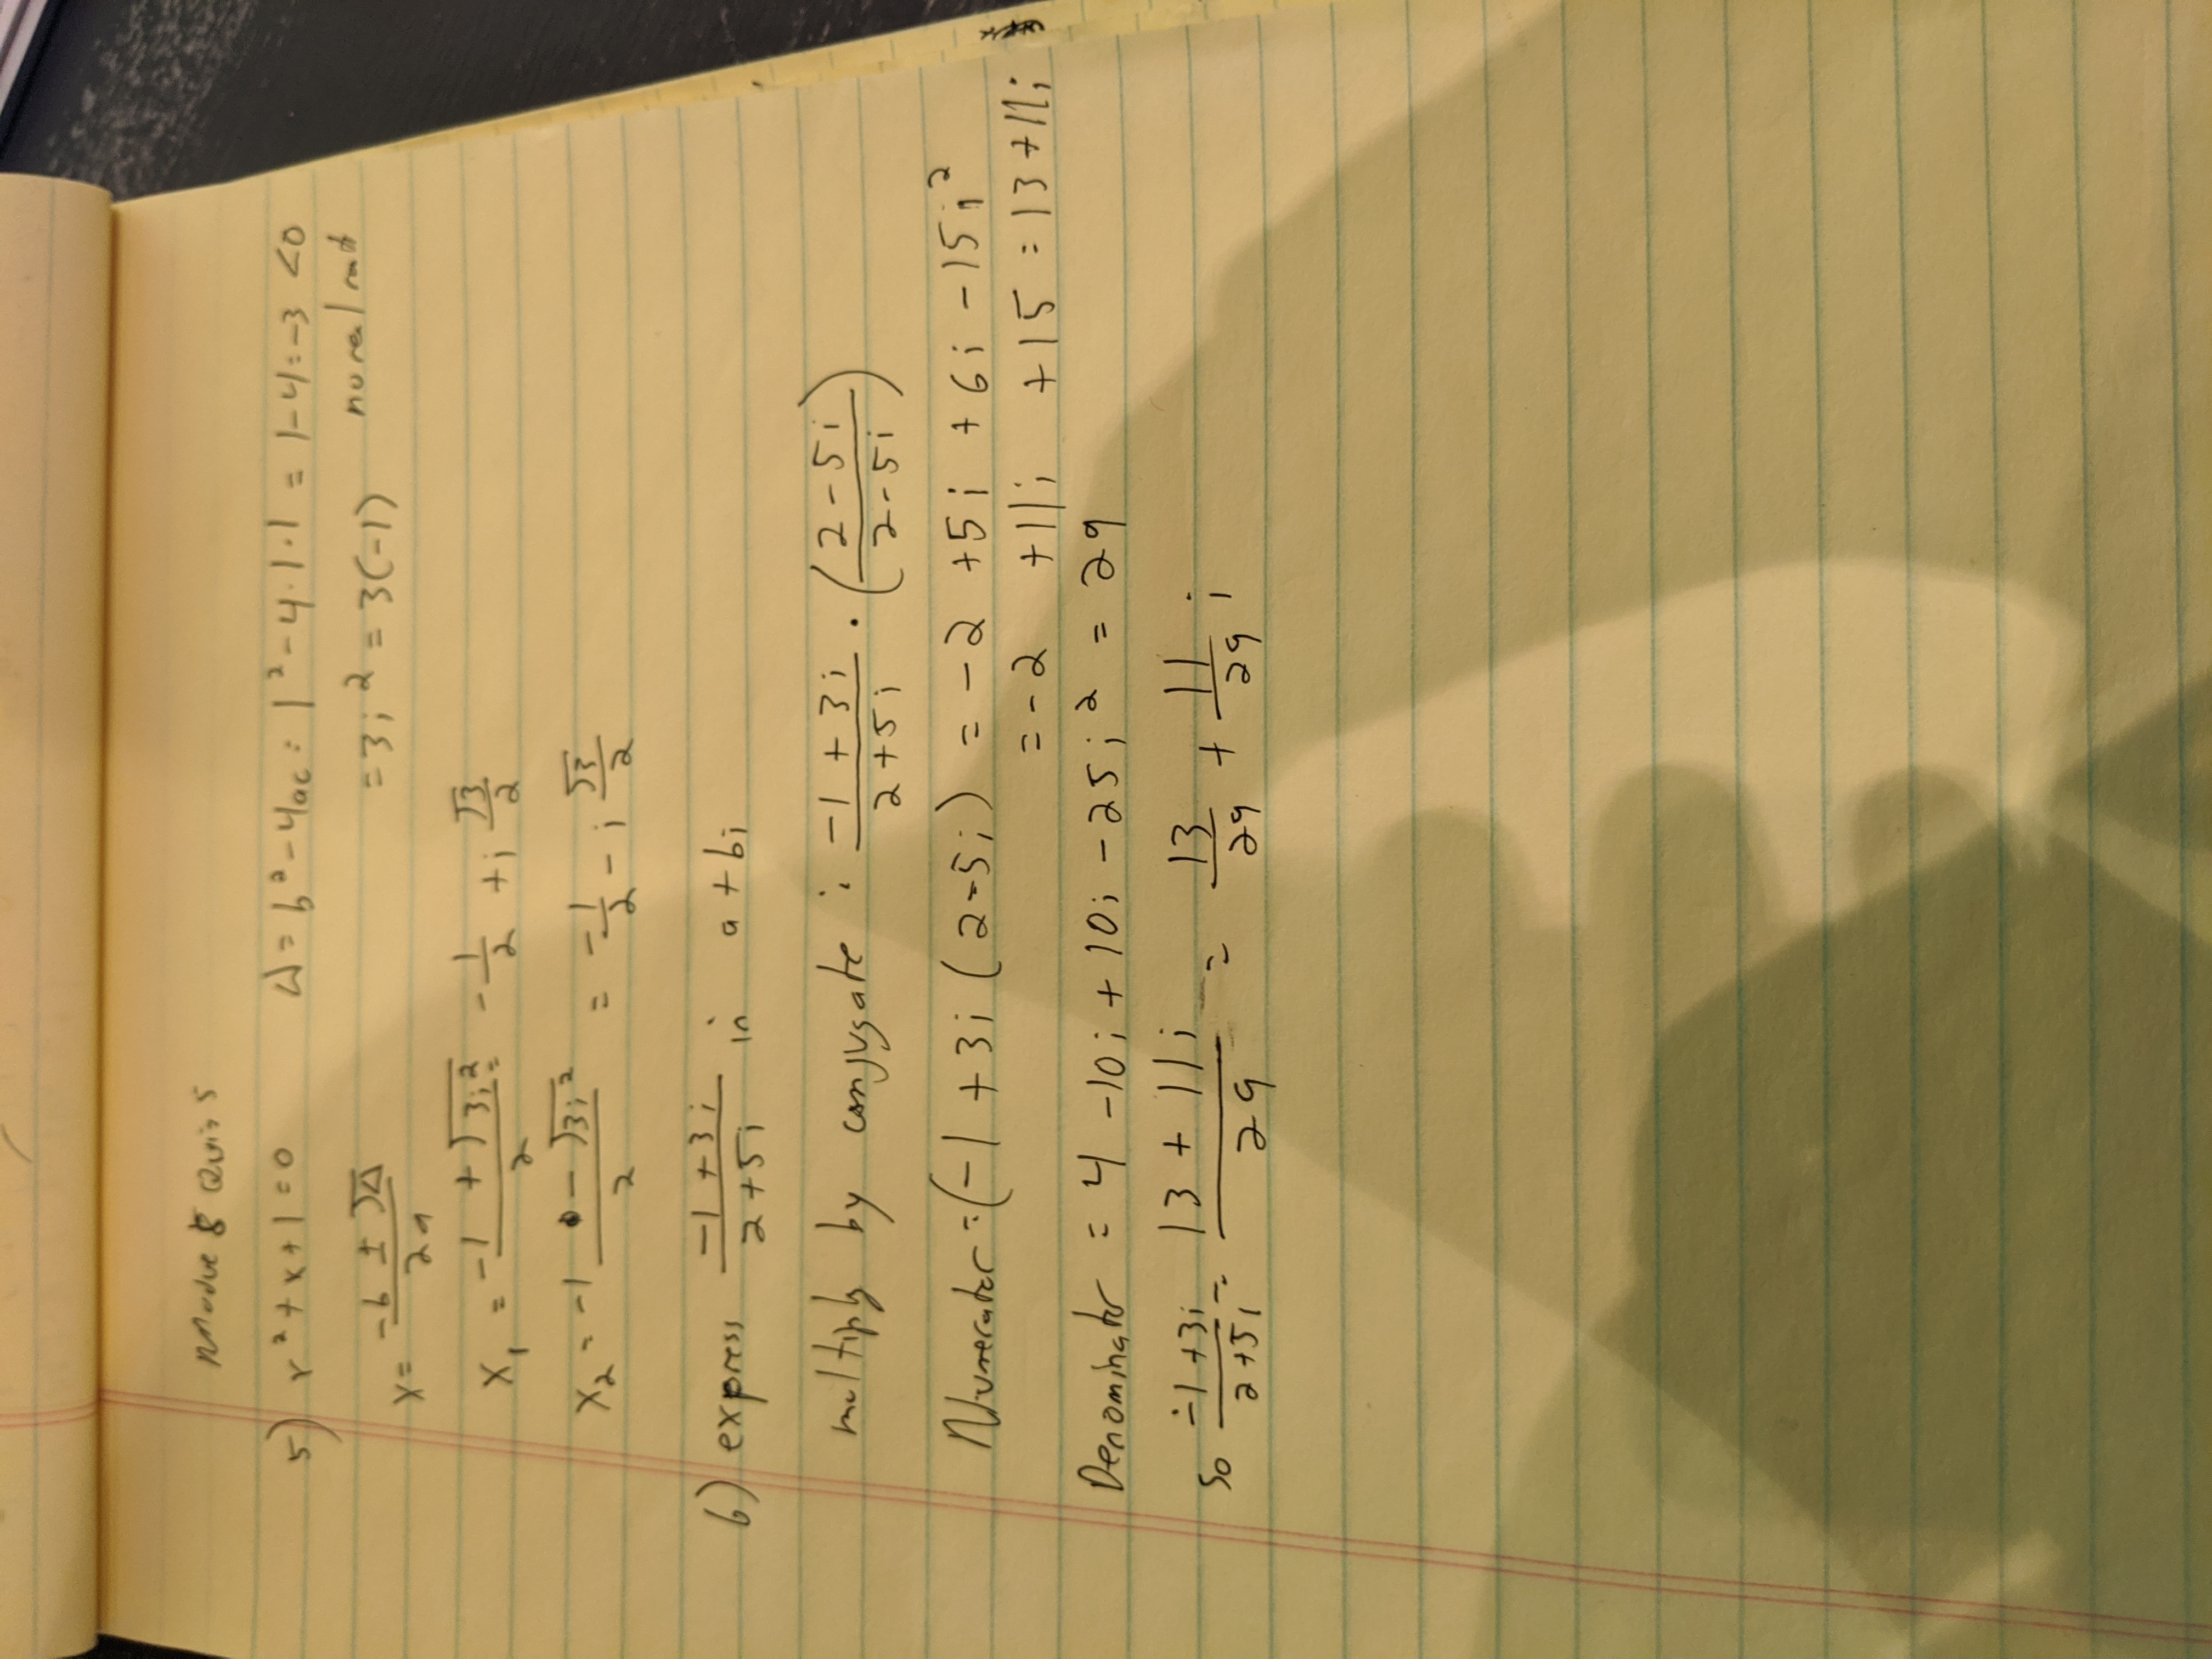 Module 8 Quiz 5
5) x² + x + 1 = 0 Δ = b² - 4ac = 1² - 4·1·1 = 1-4 = -3 < 0
= 3i² = 3(-1) no real root
x = (-b ± √Δ)/2a
x₁ = (-1 + √3i²)/2 = -1/2 + i √3/2
x₂ = (-1 - √3i²)/2 = -1/2 - i √3/2
6) express (-1 + 3i)/(2 + 5i) in a + bi
multiply by conjugate : (-1 + 3i)/(2 + 5i) · ((2 - 5i)/(2 - 5i))
Numerator = (-1 + 3i (2-5i) = -2 +5i + 6i - 15i²
= -2 + 11i + 15 = 13 + 11i
Denominator = 4 - 10i + 10i - 25i² = 29
So (-1 + 3i)/(2 + 5i) = (13 + 11i)/29 = 13/29 + 11/29 i